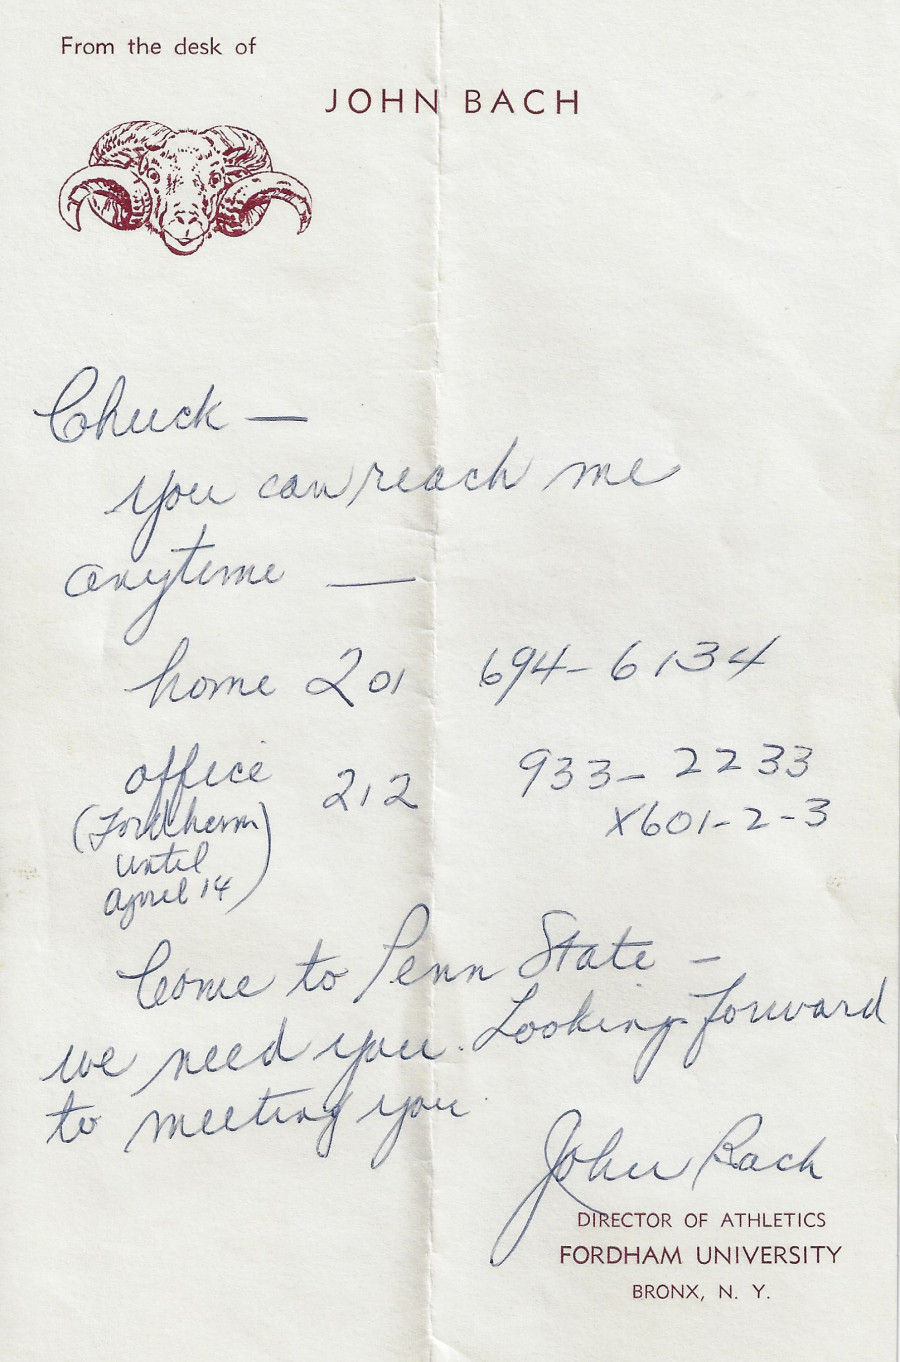 From the desk of
JOHN BACH
Chuck —
you can reach me
anytime —
home 201 694-6134
office 212 933-2233
(Fordham X601-2-3
until
April 14)
Come to Penn State -
we need you. Looking forward
to meeting you.
John Bach
DIRECTOR OF ATHLETICS
FORDHAM UNIVERSITY
BRONX, N. Y.